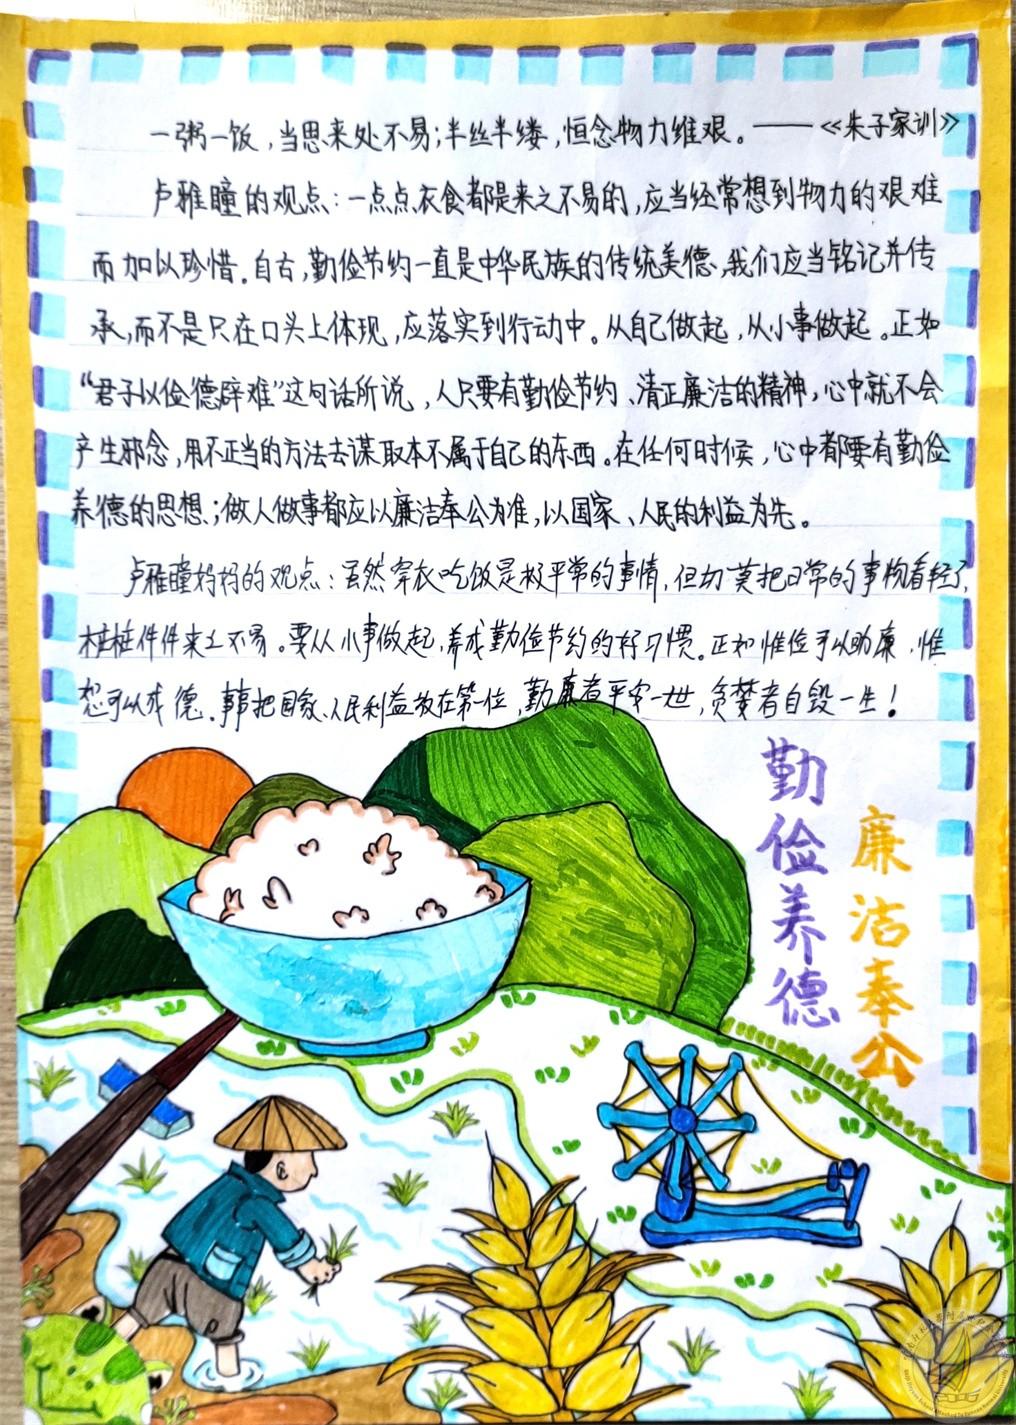 一粥一饭，当思来处不易；半丝半缕，恒念物力维艰。——《朱子家训》
卢雅瞳的观点：一点点衣食都是来之不易的，应当经常想到物力的艰难
而加以珍惜。自古，勤俭节约一直是中华民族的传统美德，我们应当铭记并传
承，而不是只在口头上体现，应落实到行动中。从自己做起，从小事做起。正如
“君子以俭德辟难”这句话所说，人只要有勤俭节约、清正廉洁的精神，心中就不会
产生邪念，用不正当的方法去谋取本不属于自己的东西。在任何时候，心中都要有勤俭
养德的思想；做人做事都应以廉洁奉公为准，以国家、人民的利益为先。
卢雅瞳妈妈的观点：虽然穿衣吃饭是极平常的事情，但切莫把日常的事物看轻了，
桩桩件件来之不易。要从小事做起，养成勤俭节约的好习惯。正如惟俭可以助廉，惟
恕可以成德。事事把国家、人民利益放在第一位，勤廉者平安一世，贪婪者自毁一生！
勤俭养德
廉洁奉公